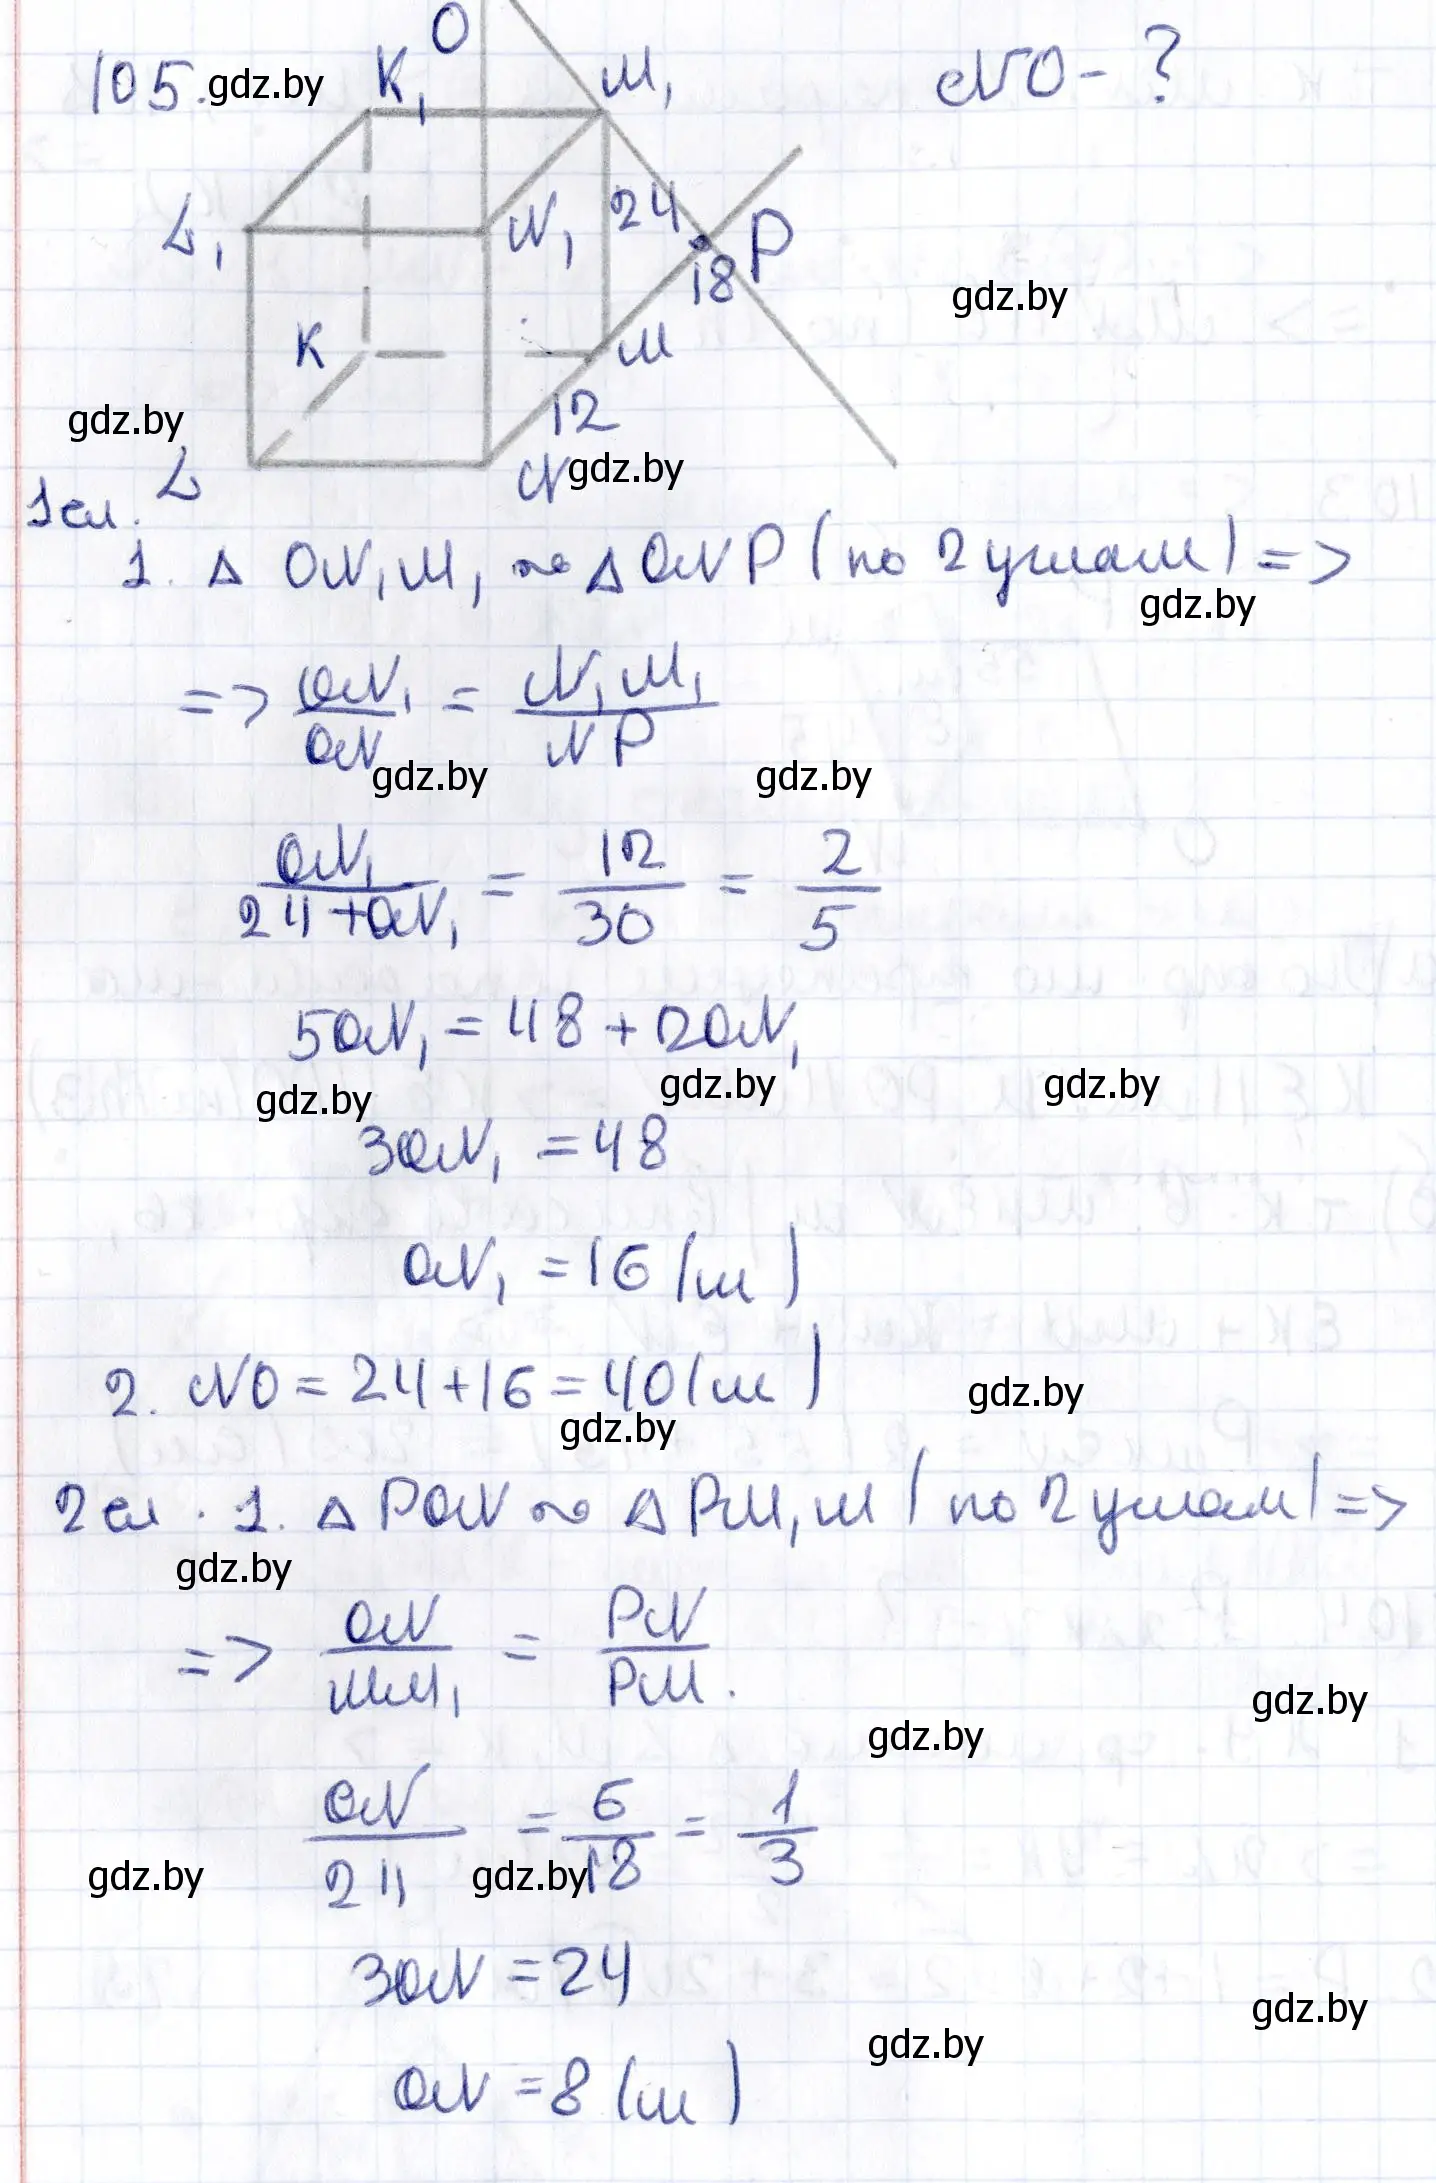 O
105. gdz.by K₁ M₁ NO - ?
L₁ N₁ 24 P
18 gdz.by
K M
gdz.by 12
L N gdz.by
1 сл.
1. △ ON₁M₁ ~ △ ONP (по 2 углам) =>
gdz.by
=> ON₁/ON = N₁M₁/NP
gdz.by gdz.by
ON₁/(24+ON₁) = 12/30 = 2/5
5ON₁ = 48 + 2ON₁
gdz.by gdz.by gdz.by
3ON₁ = 48
ON₁ = 16 (м)
2. NO = 24 + 16 = 40 (м) gdz.by
gdz.by
2 сл. 1. △ PON ~ △ PM₁M (по 2 углам) =>
gdz.by
=> ON/MM₁ = PN/PM.
gdz.by gdz.by
ON/24 = 6/18 = 1/3
gdz.by gdz.by
3ON = 24
gdz.by gdz.by
ON = 8 (м)